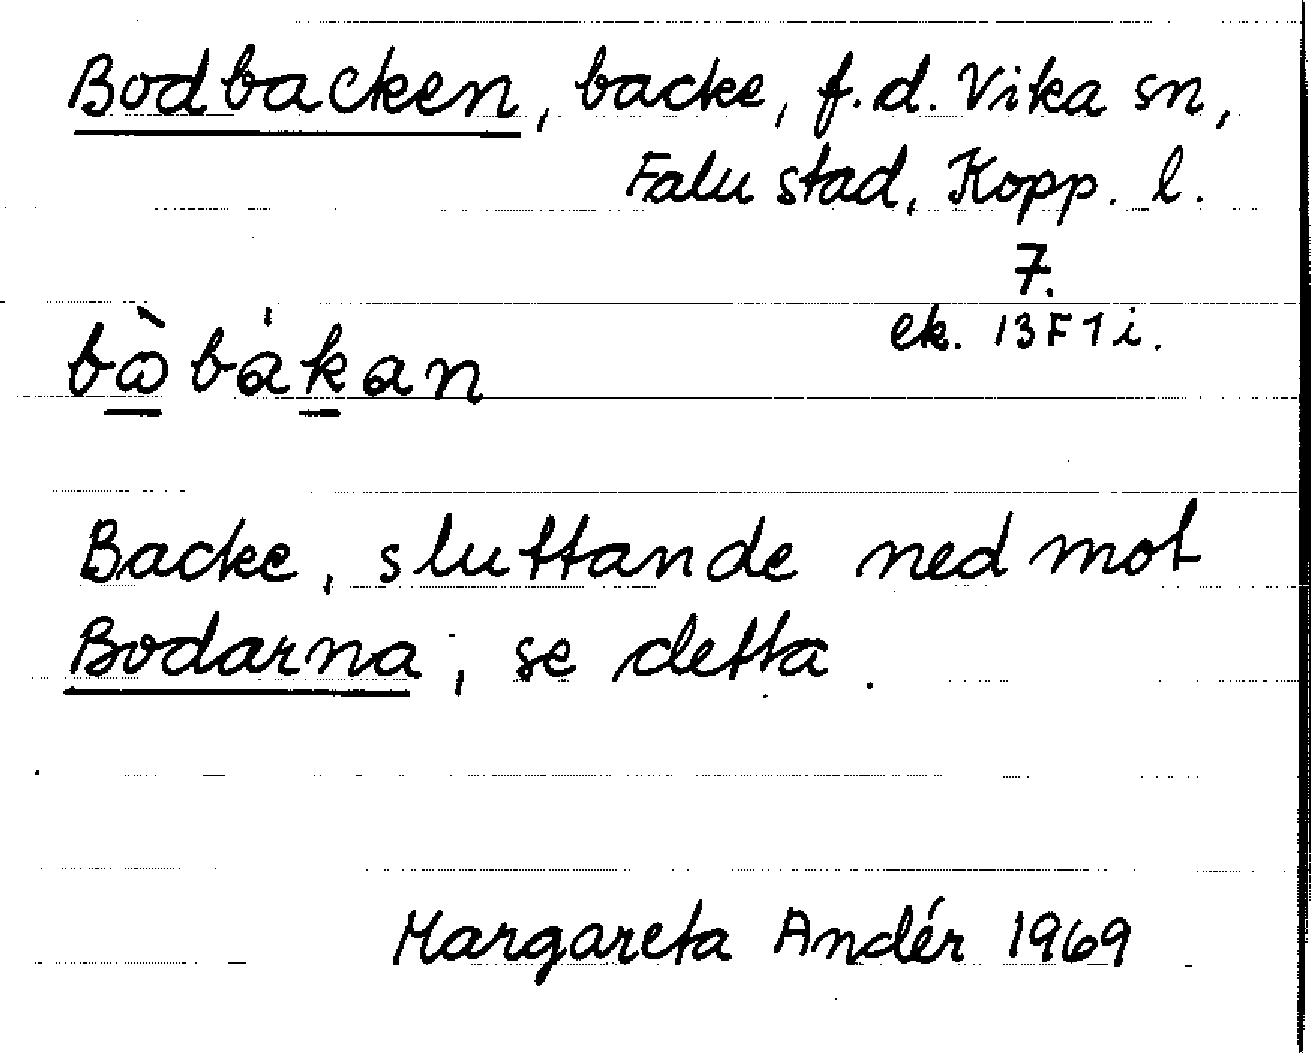 Bodbacken, backe, f.d. Vika sn,
Falu stad, Kopp. l.
7.
ek. 13F1i.
bὼbákan
Backe, sluttande ned mot
Bodarna, se detta.
Margareta Andér 1969